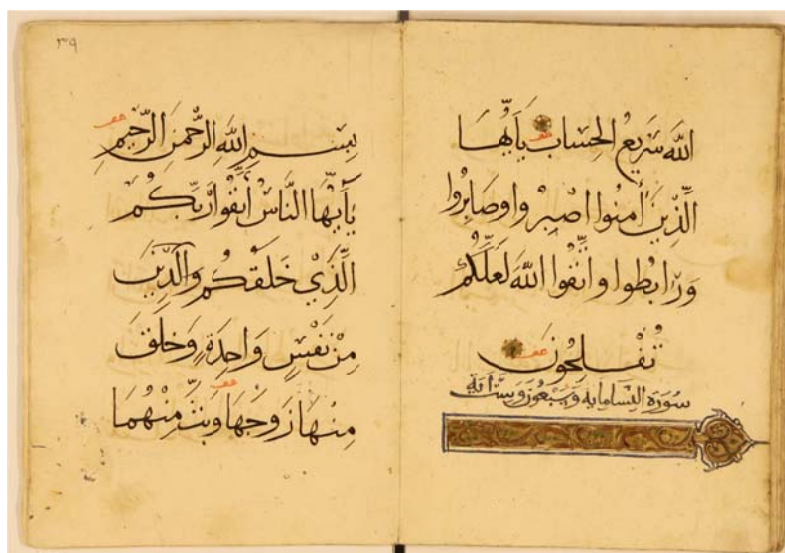 اللَّهَ سَرِيعُ الْحِسَابِ يَأَيُّهَا
الَّذِينَ أَمَنُوا اصْبِرُوا وَصَابِرُوا
وَرَابِطُوا وَاتَّقُوا اللَّهَ لَعَلَّكُمْ
تُفْلِحُونَ
سورة النسا مايه وسبعون وست اية
٣٩
بِسْمِ اللَّهِ الرَّحْمَنِ الرَّحِيمِ
يَأَيُّهَا النَّاسُ اتَّقُوا رَبَّكُمُ
الَّذِي خَلَقَكُمْ وَالَّذِينَ
مِنْ نَفْسٍ وَاحِدَةٍ وَخَلَقَ
مِنْهَا زَوْجَهَا وَبَثَّ مِنْهُمَا